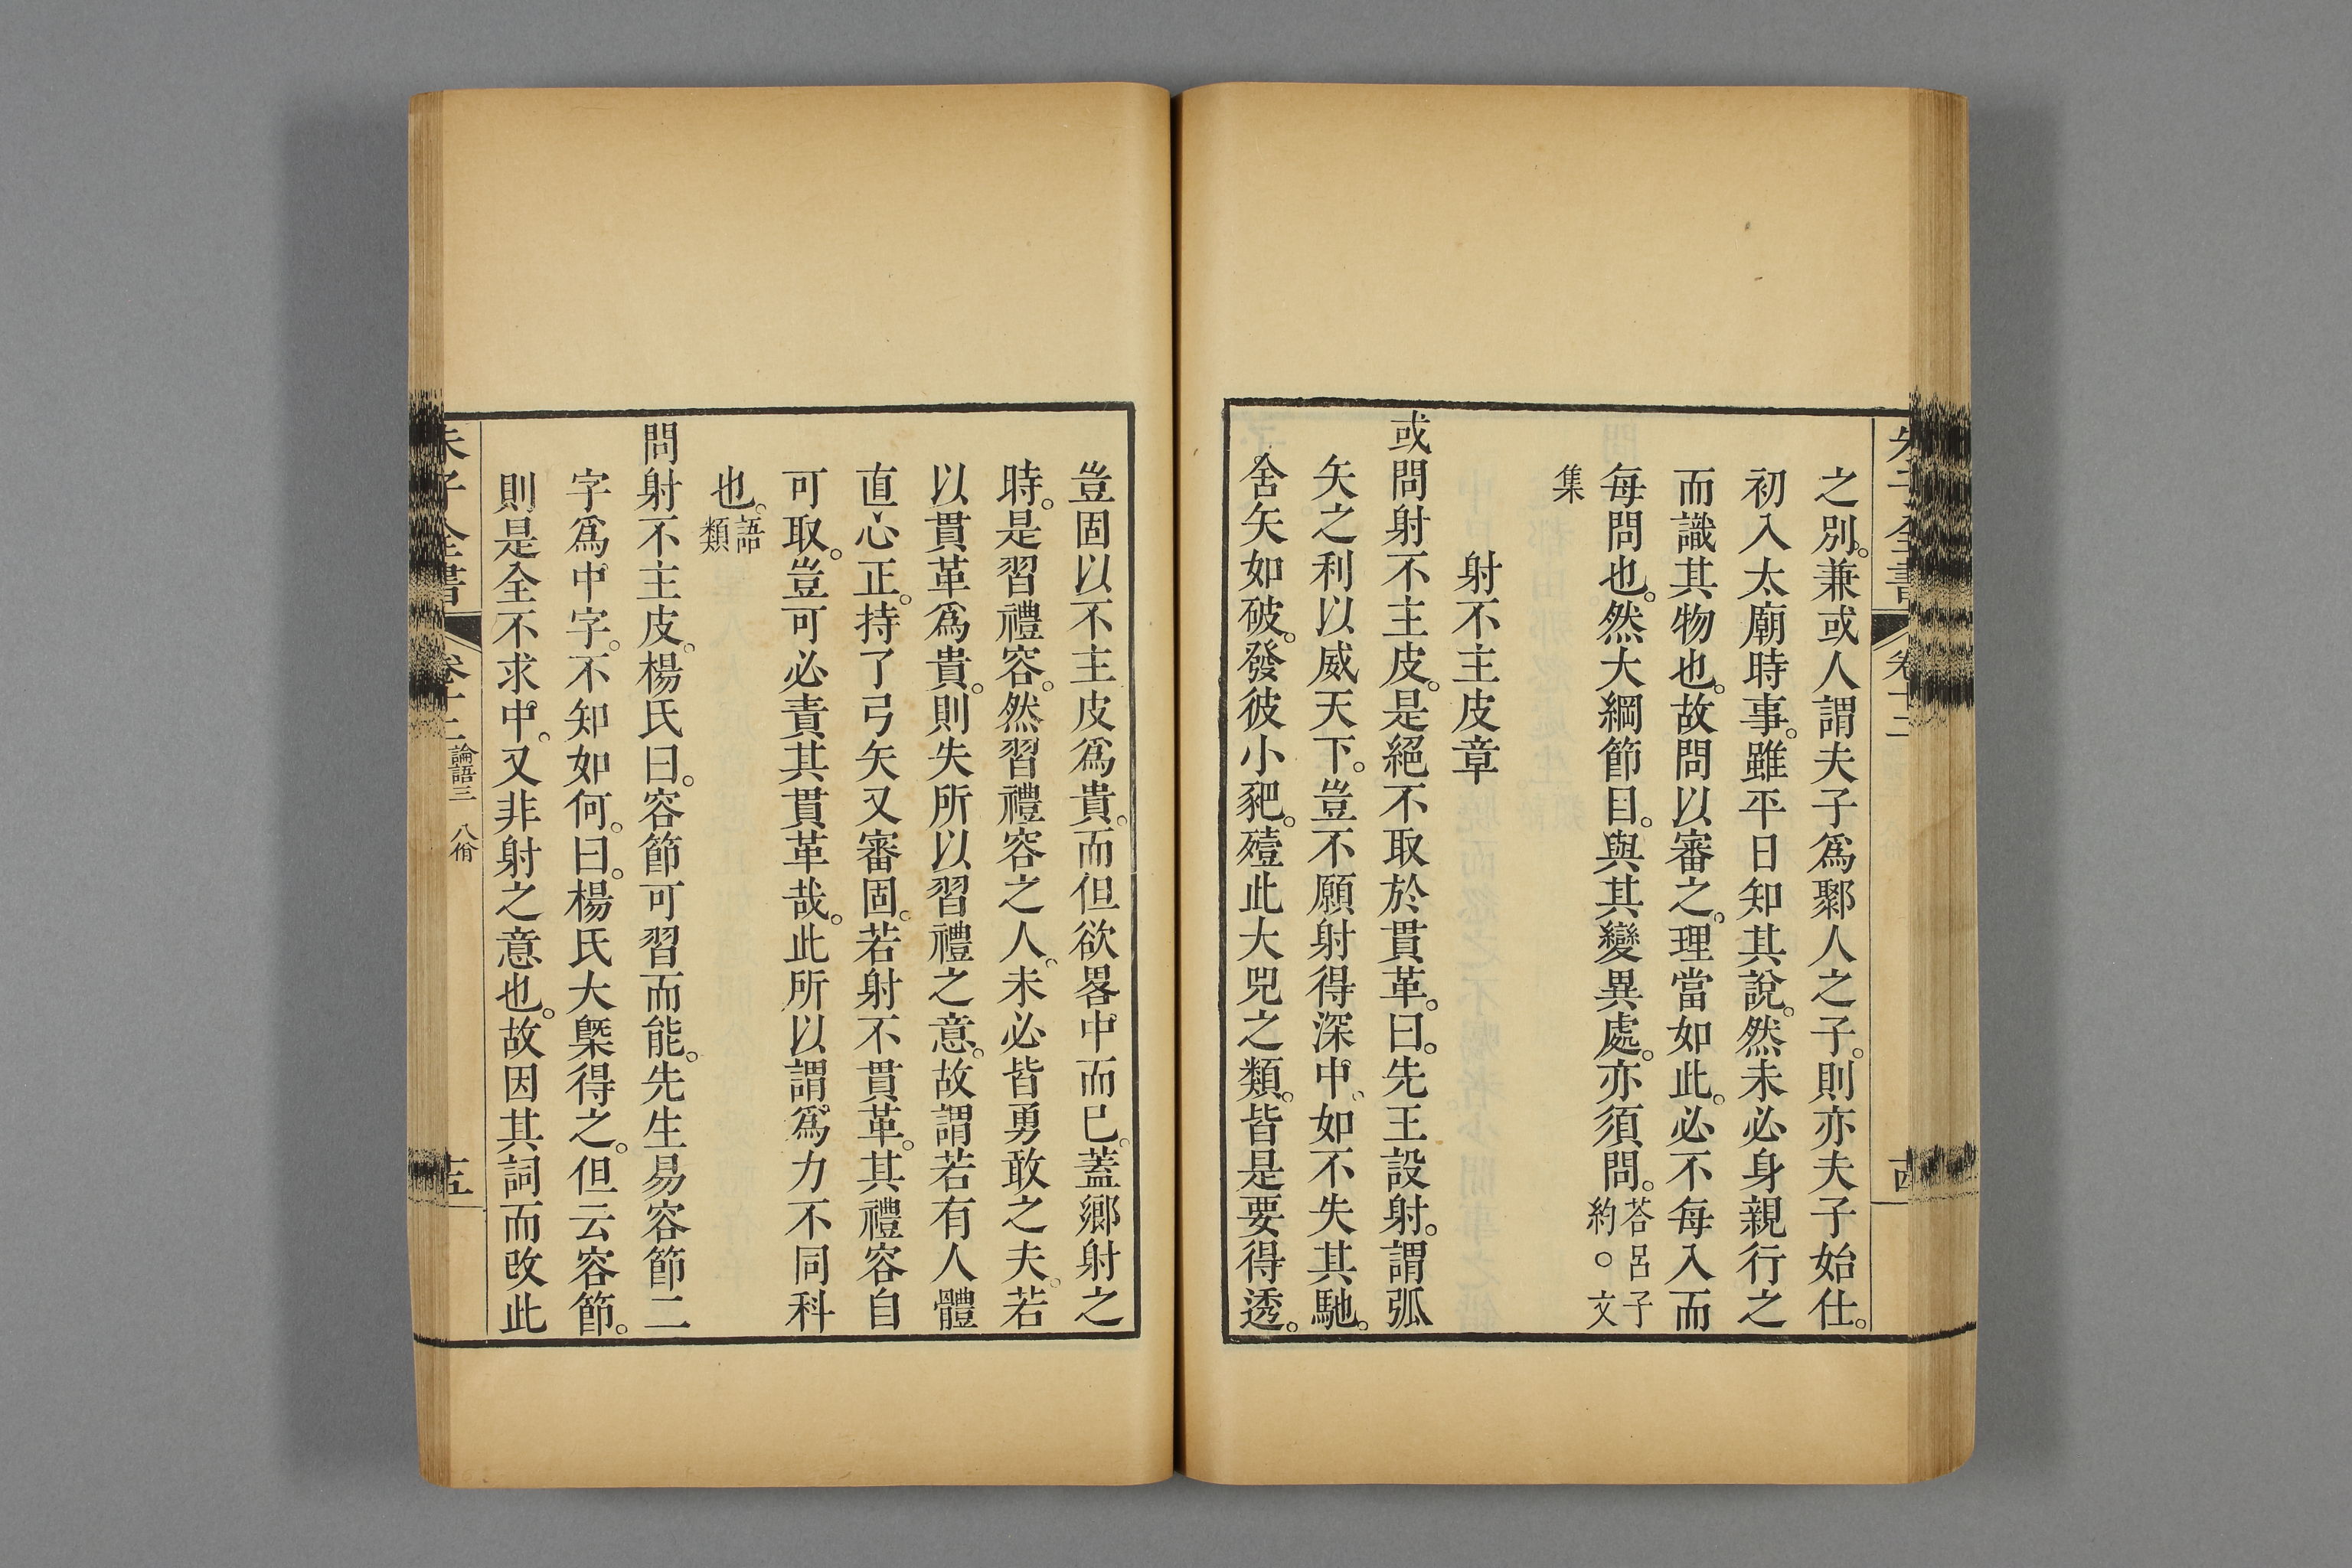 朱子全書　卷十二　古
之別。兼或人謂夫子爲鄹人之子。則亦夫子始仕。
初入太廟時事。雖平日知其說。然未必身親行之
而識其物也。故問以審之。理當如此。必不每入而
每問也。然大綱節目。與其變異處。亦須問。荅呂子約。○文
集
射不主皮章
或問射不主皮。是絕不取於貫革。曰。先王設射。謂弧
矢之利以威天下。豈不願射得深中。如不失其馳。
舍矢如破。發彼小豝。殪此大兕之類。皆是要得透。
豈固以不主皮爲貴。而但欲畧中而已。蓋鄉射之
時。是習禮容。然習禮容之人。未必皆勇敢之夫。若
以貫革爲貴。則失所以習禮之意。故謂若有人體
直心正。持了弓矢又審固。若射不貫革。其禮容自
可取。豈可必責其貫革哉。此所以謂爲力不同科
也。語類
問射不主皮。楊氏曰。容節可習而能。先生易容節二
字爲中字。不知如何。曰。楊氏大槩得之。但云容節。
則是全不求中。又非射之意也。故因其詞而改此
朱子全書　卷十二　論語三　八佾　十五